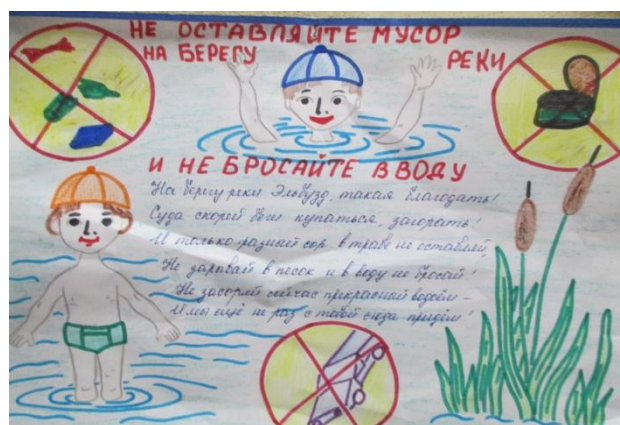 НЕ ОСТАВЛЯЙТЕ МУСОР
НА БЕРЕГУ РЕКИ
И НЕ БРОСАЙТЕ В ВОДУ
На берегу реки Эльбузд, такая благодать!
Суда скорей беги купаться, загорать!
И только разный сор в траве не оставляй,
Не зарывай в песок и в воду не бросай!
Не засоряй сейчас прекрасный водоём –
И мы ещё не раз с тобой сюда придём!